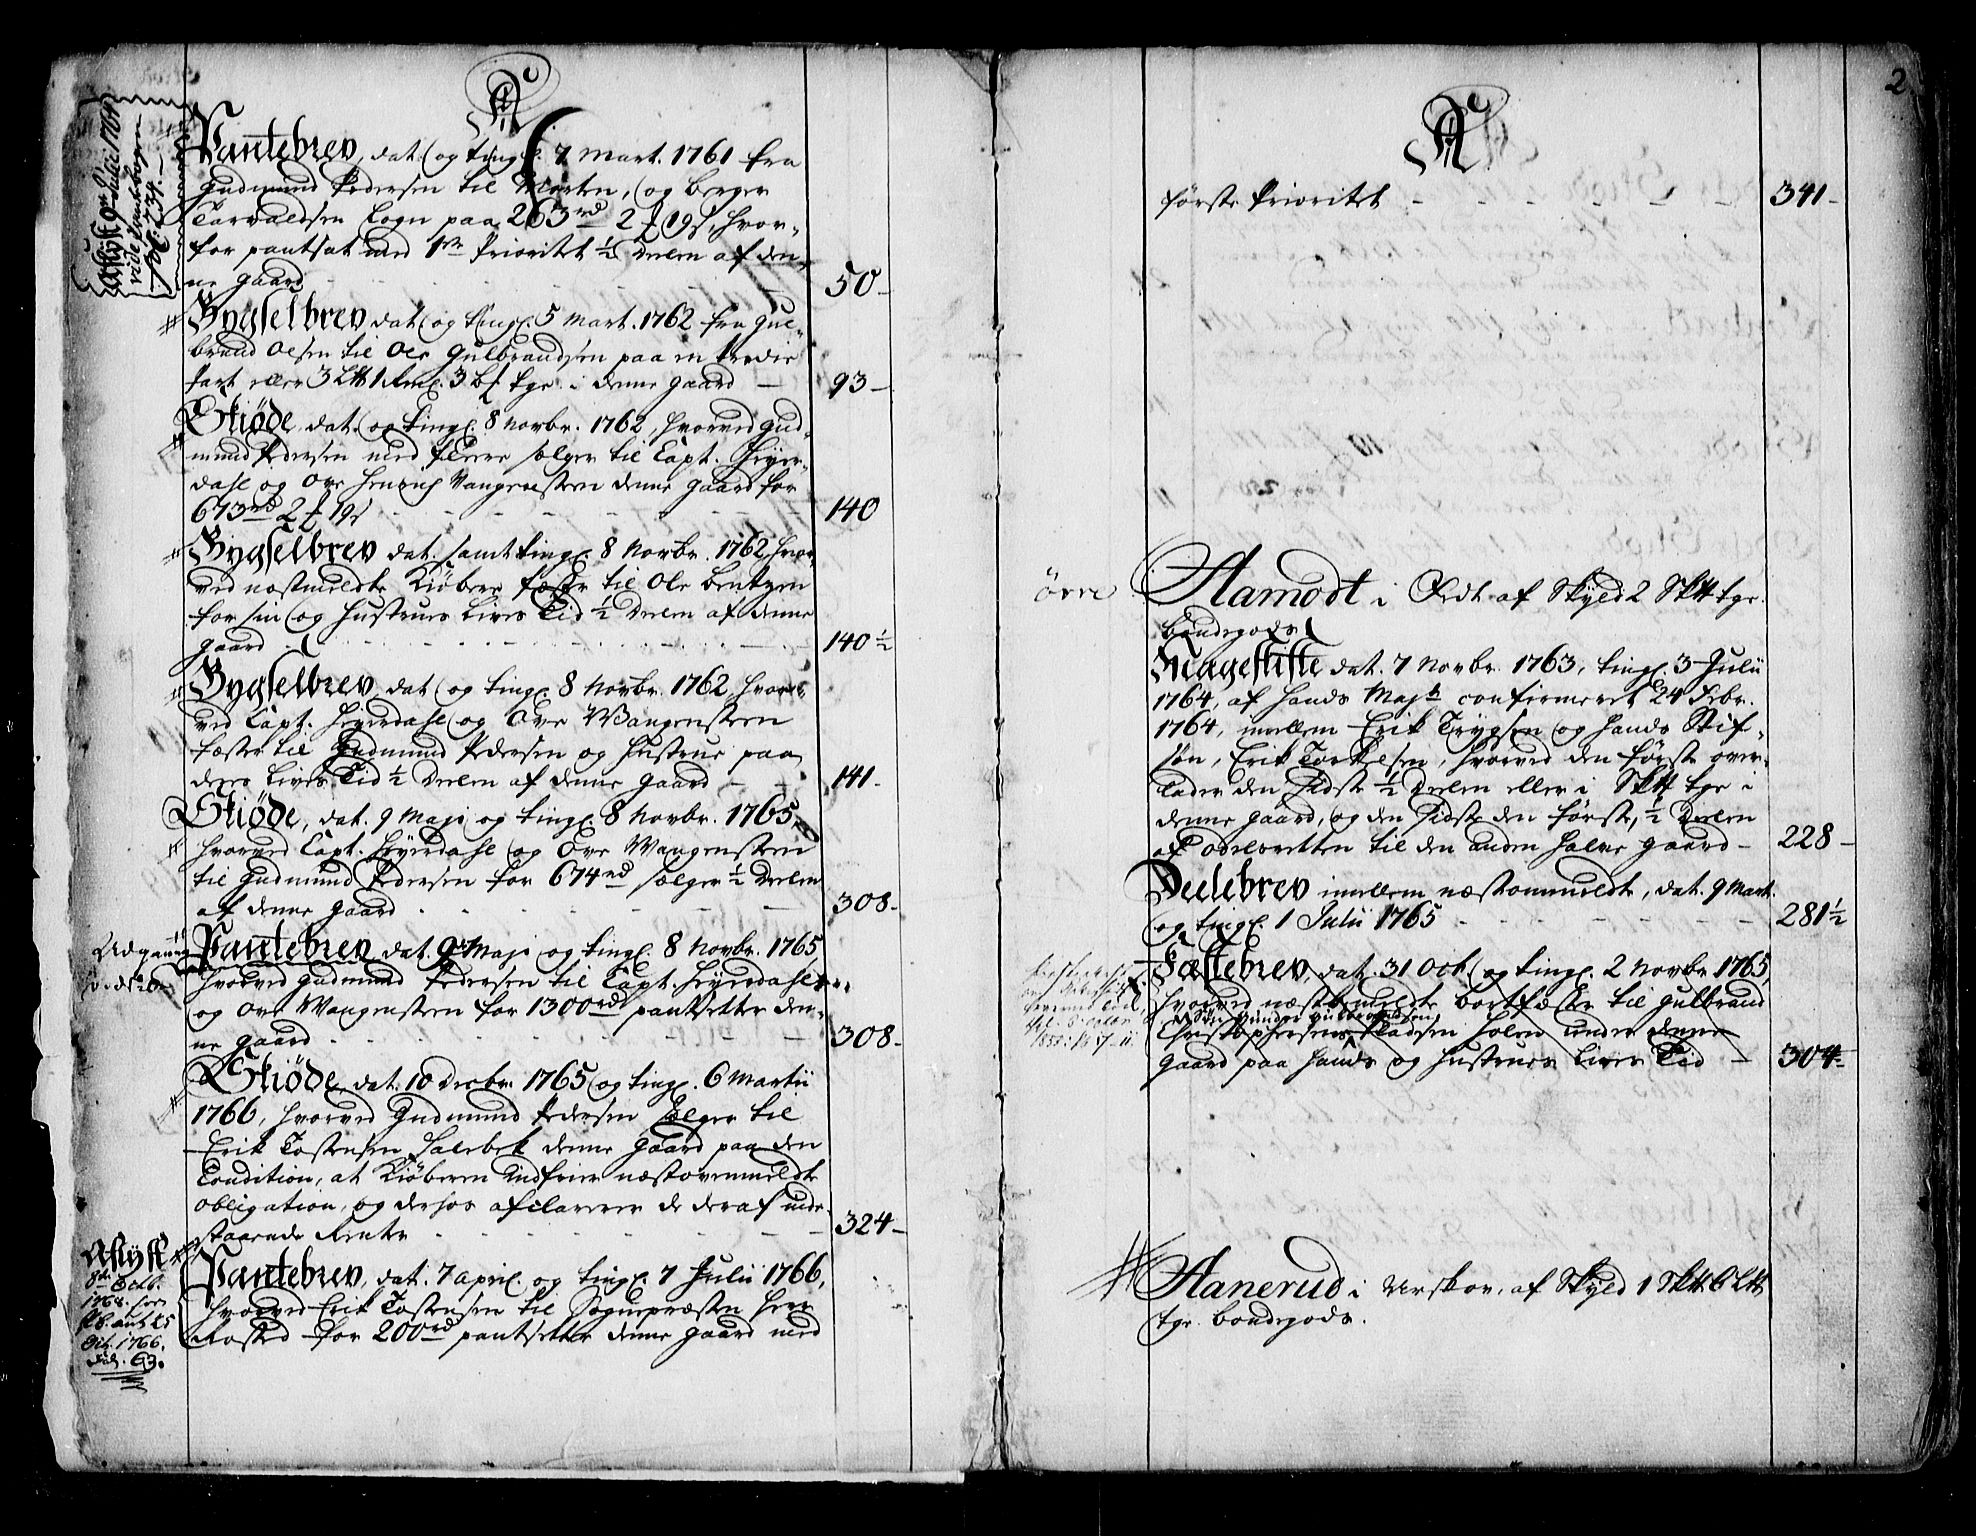 A
Aflyst 9de Julii 1764
vide Pantebogen
fol. 234.
Pantebrev, dat. og tingl. 7 Mart. 1761 fra
Gudmund Pedersen til Morten, og Berger
Torvaldsen Logn paa 263 rd 2 ß 19 s, hvor-
for pantsat med 1te Prioritet ½ Deelen af den-
ne gaard - 50 -
# Bygselbrev dat. og tingl. 5 Mart. 1762 fra Gul-
brand Olsen til Ole Gulbrandsen paa en tredie
part eller 3 L℔ 1 Rml. 3 bl. tge. i denne gaard - 93 -
# Skiøde, dat. og tingl. 8 Novbr. 1762, hvorved Gud-
mund Pedersen med fleere sælger til Capt. Heyer-
dahl og Ove Henrich Vangensteen denne gaard for
673 rd 2 ß 19 s - 140
# Bygselbrev dat. samt tingl. 8 Novbr. 1762, hvor-
ved næstmeldte Kiøbere fæste til Ole Bentzen
for sin og Hustrues Lives Tid ½ Deelen af denne
gaard - 140½
# Bygselbrev dat. og tingl. 8 Novbr. 1762 hvor-
ved Capt. Heyerdahl og Ove Wangensteen
fæste til Gudmund Pedersen og Hustrue paa
deres Lives Tid ½ Deelen af denne gaard - 141 -
# Skiøde, dat. 9 Maji og tingl. 8 Novbr. 1765,
hvorved Capt. Heyerdahl og Ove Wangensteen
til Gudmund Pedersen for 674 rd sælger ½ Deelen
af denne gaard - 308 -
Udgaaen
Pantebrev dat. 9 Maji og tingl. 8 Novbr. 1765,
hvorved Gudmund Pedersen til Capt. Heyerdahl
og Ove Wangensteen for 1300 rd pantsetter den-
ne gaard - 308 -
# Skiøde, dat. 10 Decbr. 1765 og tingl. 6 Martii
1766, hvorved Gudmund Pedersen sælger til
Erik Tostensen Salebek denne gaard paa den
Condition, at Kiøberen indfrier næstovenmeldte
obligation, og derhos aflarerer de deraf inde-
staaende Renter - 324 -
Aflyst
8de Octb.
1766.
fol. 63.
# Pantebrev, dat. 7 April. og tingl. 7 Julii 1766,
hvorved Erik Tostensen til Sognepræsten Herr
Rosted for 200 rd pantsetter denne gaard med
2
A
første Prioritet - 341 -
øvre Aamodt i Ødt. af Skyld 2 Sk℔ tge.
bondegods
Mageskifte dat. 7 Novbr. 1763, tingl. 3 Julii
1764, af Hands Majt. confirmeret 24 Febr.
1764, imellem Erik Trygsen og Hands Stif-
søn, Erik Torkelsen, hvorved den første over-
lader den Sidste ½ Deelen eller i Sk℔ tge i
denne gaard, og den Sidste den første, ½ Deelen
af odelsretten til den anden halve gaard - 228 -
Deelebrev imellem næstommeldte, dat. 9 Mart.
og tingl. 1 Julii 1765 - 281½
Fæstebrev, dat. 31 Oct. og tingl. 2 Novbr. 1765,
hvorved næstbemeldte bortfæste til Gulbrand
Christophersen Pladsen Holen under denne
gaard paa Hands og Hustrues Lives Tid - 304 -
# Aanerud i Urskov, af Skyld 1 Sk℔ 6 L℔
tge. bondegods.